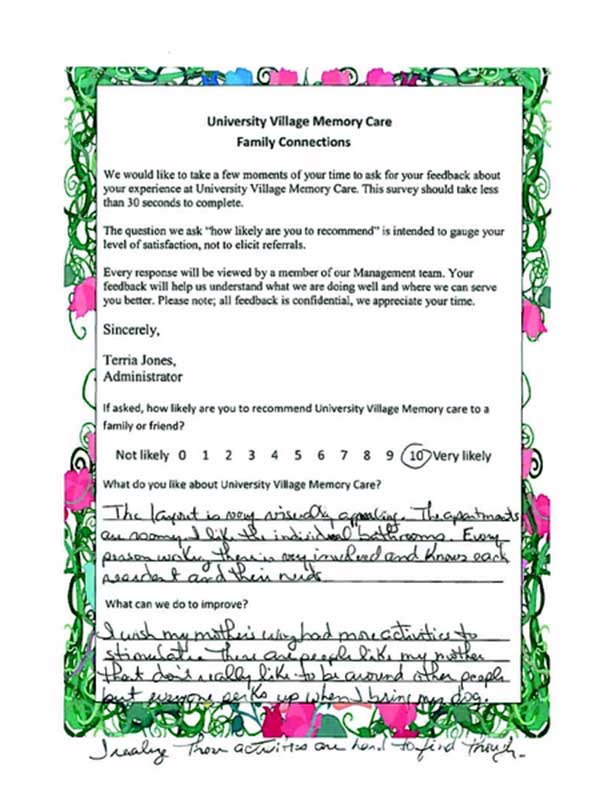 University Village Memory Care
Family Connections
We would like to take a few moments of your time to ask for your feedback about
your experience at University Village Memory Care. This survey should take less
than 30 seconds to complete.
The question we ask “how likely are you to recommend” is intended to gauge your
level of satisfaction, not to elicit referrals.
Every response will be viewed by a member of our Management team. Your
feedback will help us understand what we are doing well and where we can serve
you better. Please note; all feedback is confidential, we appreciate your time.
Sincerely,
Terria Jones,
Administrator
If asked, how likely are you to recommend University Village Memory care to a
family or friend?
Not likely 0 1 2 3 4 5 6 7 8 9 10 Very likely
What do you like about University Village Memory Care?
The layout is very visually appealing. The apartments
are roomy. I like the individual bathrooms. Every
person working there is very involved and knows each
resident and their needs
What can we do to improve?
I wish my mother's wing had more activities to
stimulate. There are people like my mother
that don't really like to be around other people
but everyone perks up when I bring my dog.
I realize those activities are hard to find though.